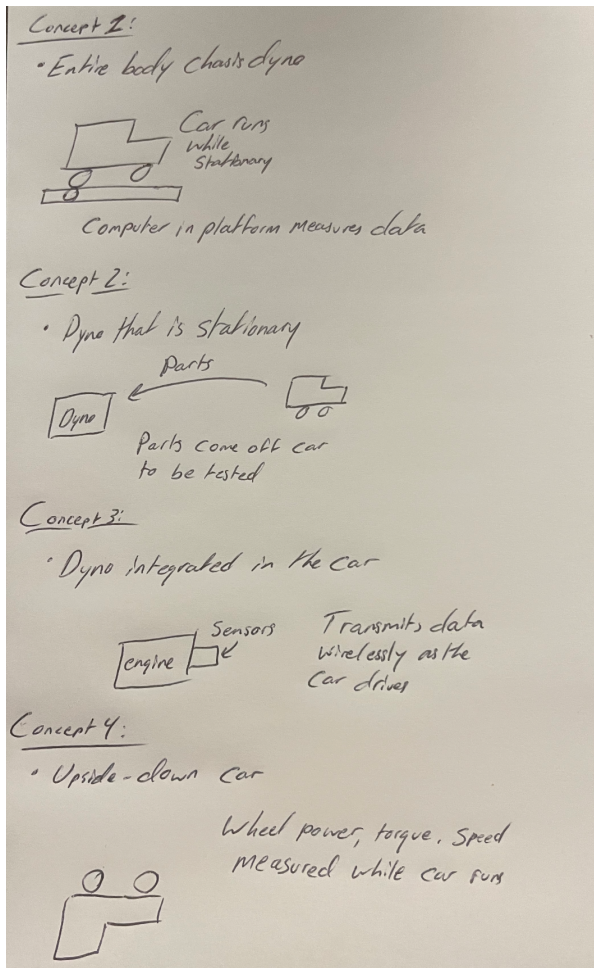 Concept 1:
• Entire body chasis dyno
Car runs
while
stationary
Computer in platform measures data
Concept 2:
• Dyno that is stationary
Parts
Dyno
Parts come off car
to be tested
Concept 3:
• Dyno integrated in the car
Sensors
engine
Transmits data
wirelessly as the
car drives
Concept 4:
• Upside-down car
Wheel power, torque, speed
measured while car runs